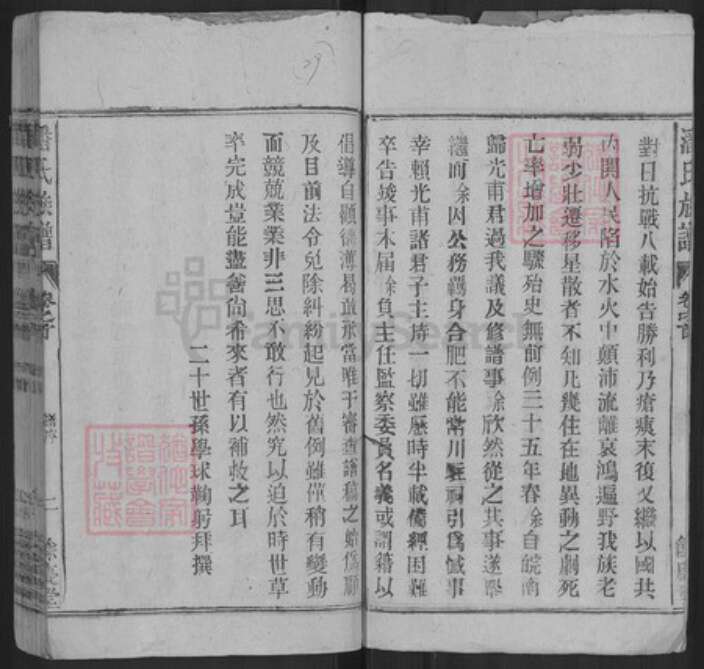 對日抗戰八載始告勝利乃瘡痍未復又繼以國共
內閧人民陷於水火中顛沛流離哀鴻遍野我族老
弱少壯遷移星散者不知凡幾住在地異動之劇死
亡率增加之驟殆史無前例三十五年春余自皖南
歸光甫君過我議及修譜事余欣然從之其事遂舉
繼而余因公務羈身合肥不能常川駐祠引爲憾事
幸賴光甫諸君子主持一切雖歷時半載備經困難
卒告竣事本届余負主任監察委員名義或謂藉以
倡導自顧德薄曷敢承當唯于審查譜稿之始僞順
及目前法令兒除糾紛起見於舊例雖僅稍有變動
面競競業業非三思不敢行也然究以迫於時世草
卒完成豈能盡善尚希來者有以補救之耳
二十世孫學球鞠躬拜撰
潘氏族譜 卷之首
潘氏族譜 卷之首 譜序 二
FamilySearch
(29)